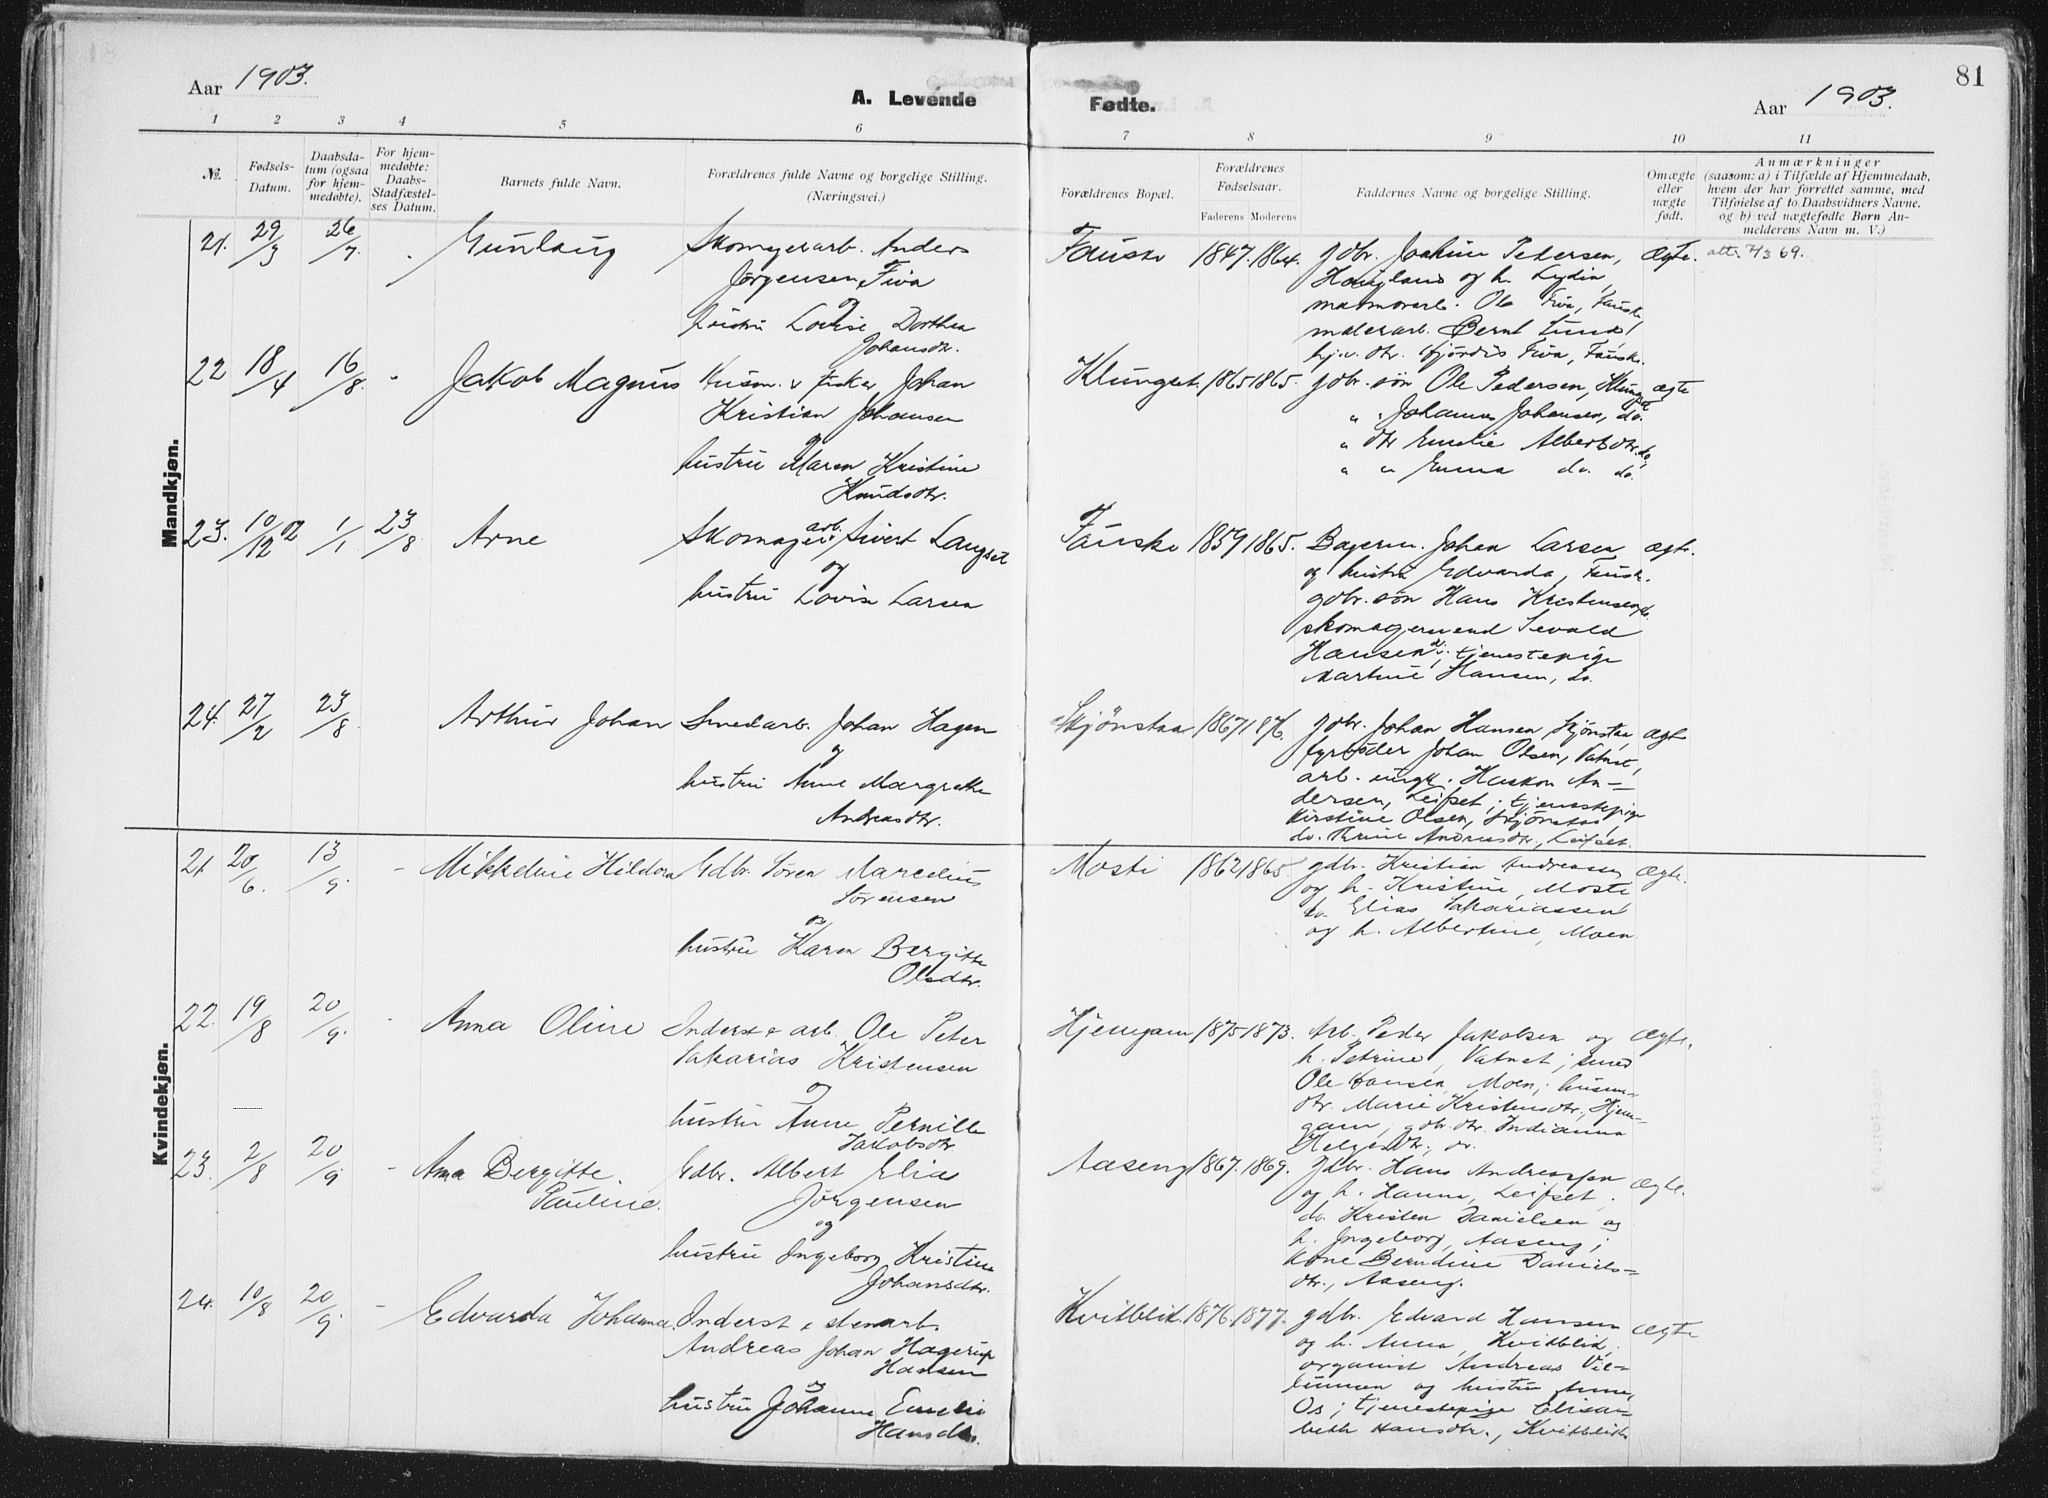 81
Aar 1903.
A. Levende
Fødte.
Aar 1903.
1 2 3 4 5 6 7 8 9 10 11
№.
Fødsels-
Datum.
Daabsda-
tum (ogsaa
for hjem-
medøbte).
For hjem-
medøbte:
Daabs-
Stadfæstel-
ses Datum.
Barnets fulde Navn.
Forældrenes fulde Navne og borgelige Stilling.
(Næringsvei.)
Forældrenes Bopæl.
Forældrenes
Fødselsaar.
Faderens Moderens
Faddernes Navne og borgelige Stilling.
Omægte
eller
nægte
født.
Anmærkninger
(saasom: a) i Tilfælde af Hjemmedaab,
hvem der har forrettet samme, med
Tilføielse af to Daabsvidners Navne.
og b) ved uægtefødte Børn An-
melderens Navn m. V.)
Mandkjøn.
21. 29/3 26/7. Gunlaug
Skomagerarb. Anders
Jørgensen Fiva
og
hustru Lovise Dorthea
Johansdtr.
Fauske 1847. 1864.
gdbr. Joakim Pedersen,
Haugland og h. Lydia,
marmorarb. Ole Fiva, Fauske
malerarb. Bernt Lund,
hj.v. dtr. Hjördis Fiva, Fauske.
Ægte. att. 7/3 69.
22 18/4 16/8. Jakob Magnus
Husm. & fisker Johan
Kristian Johansen
og
hustru Maren Kristine
Knudsdtr.
Klungset. 1865 1865.
gdbr. søn Ole Pedersen, Klungset
" " Johannes Johansen, do.
" dtr Emelie Albertsdtr. do.
" " Emma do. do.
ægte
23. 10/12 02 1/1 23/8. Arne
Skomagerarb. Sivert Langset
og
hustru Lovise Larsen
Fauske 1859 1865.
Bagerm. Johan Larsen
og hustru Edvarda, Fausk.
gdbr. søn Hans Kristensen, do.
skomagersvend Sevald
Hansen, do. tjenestepige
Martine Hansen, do.
ægte.
24. 27/2 23/8 Arthur Johan
Smedarb. Johan Hagen
og
hustru Anne Margrethe
Andreasdtr.
Skjønstaa 1867 1876.
gdbr. Johan Hansen Skjønstaa,
fyrbøder Johan Olsen, Vatnet,
arb. ungk. Haakon An-
dersen, Leifset; tjenestepige
Kirstine Olsen, Skjønstaa,
do. Trine Andreasdtr., Leifset.
ægte
Kvindekjøn.
21. 20/6. 13/9. Mikkeline Hildora
Gdbr. Søren Marcelius
Sørensen
og
hustru Karen Bergitte
Olsdtr.
Mosti 1862 1865.
gdbr. Kristian Andreassen
og h. Kristine, Moste
do. Elias Sakariassen
og h. Albertine, Moen
Ægte.
22. 19/8 20/9. Anna Oline
Inderst & arb. Ole Peter
Sakarias Kristensen
og
hustru Anne Pernille
Jakobsdtr
Hjemgam 1875 1873.
Arb. Peder Jakobsen og
h. Petrine, Vatnet; smed
Ole Hansen, Moen; husm.-
dtr. Marie Kristensdtr., Hjem-
gam, gdbr. dtr. Indianna
Helgesdtr., do.
Ægte.
23. 2/8 20/9 Anna Bergitte
Pauline.
Gdbr. Albert Elias
Jørgensen
og
hustru Ingeborg Kristine
Johansdtr.
Aaseng 1867. 1869.
Gdbr. Hans Andreassen
og h. Hanna, Leifset.
do. Kristen Danielsen og
h. Ingeborg, Aaseng;
kone Berndine Daniels-
dtr., Aaseng.
Ægte.
24. 10/8 20/9. Edvarda Johanna.
Inderst & stenarb.
Andreas Johan Hagerup
Hansen
og
hustru Johanne Emelie
Hansdtr.
Kvitblik. 1876. 1877.
gdbr. Edvard Hansen
og h. Anna, Kvitblik,
organist Andreas Vil-
lumsen og hustru Anne,
Os; tjenestepige Elisa-
beth Hansdtr., Kvitblik
Ægte